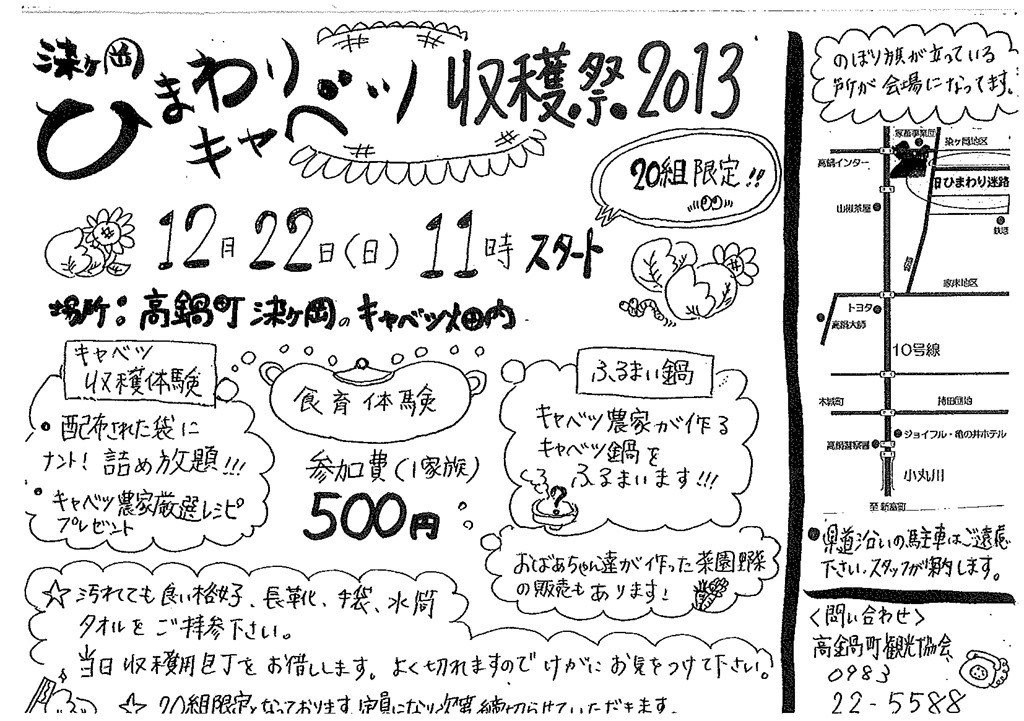 染ヶ岡
ひまわり
キャベツ 収穫祭。2013
20組限定!!
12月22日(日) 11時 スタート
場所: 高鍋町 染ヶ岡の キャベツ畑内
キャベツ
収穫体験
・配布された袋に
ナント! 詰め放題!!!
・キャベツ農家厳選レシピ
プレゼント
食育体験
参加費(1家族)
500円
ふるまい鍋
キャベツ農家が作る
キャベツ鍋を
ふるまいます!!!
?
おばあちゃん達が作った菜園野菜
の販売もあります!
☆ 汚れても良い格好、長革化、手袋、水筒
タオルをご持参下さい。
当日収穫用包丁をお借しします。よく切れますのでけがにお気をつけて下さい。
☆ 20組限定となっております。定員になり次第締切らせていただきます。
のぼり旗が立っている
所が会場になってます。
家畜事業団
染ヶ岡地区
高鍋インター
旧ひまわり迷路
山椒茶屋
家床地区
トヨタ
高鍋大師
10号線
木城町
持田団地
ジョイフル・亀の井ホテル
高鍋警察署
小丸川
至 新富町
●県道沿いの駐車はご遠慮
下さい。スタッフが案内します。
<問い合わせ>
高鍋町観光協会
0983
22-5588